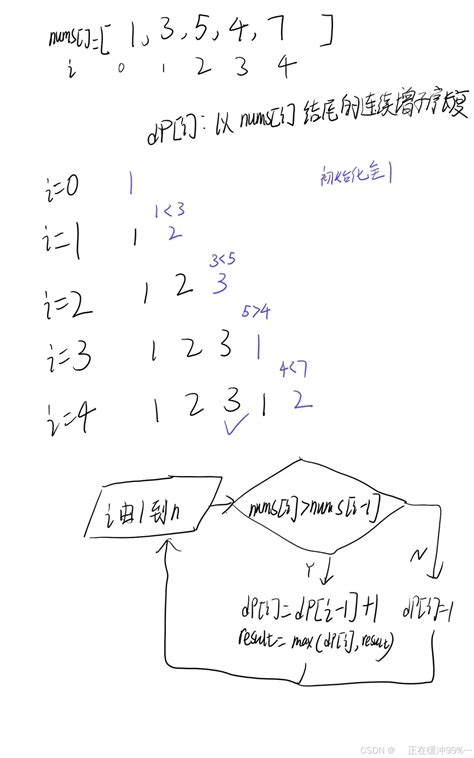 nums[]=[ 1, 3, 5, 4, 7 ]
i 0 1 2 3 4
dp[i]: 以nums[i]结尾的连续增子序长度
i=0 1 初始化全1
1<3
i=1 1 2
3<5
i=2 1 2 3
5>4
i=3 1 2 3 1
4<7
i=4 1 2 3 1 2
i由1到n
nums[i]>nums[i-1]
Y N
dp[i]=dp[i-1]+1 dp[i]=1
result=max(dp[i],result)
CSDN @ 正在缓冲99%…